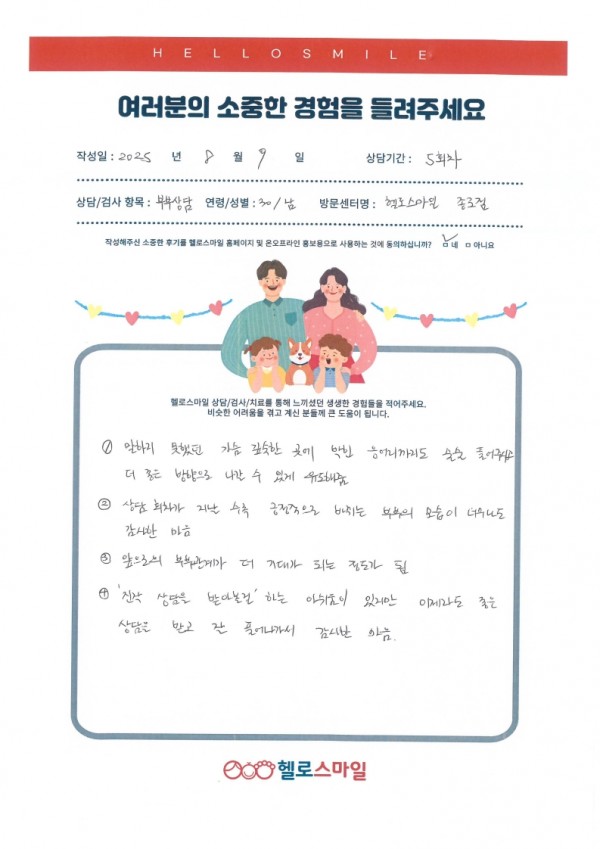 HELLOSMILE
여러분의 소중한 경험을 들려주세요
작성일 : 2025 년 8 월 9 일 상담기간 : 5회차
상담/검사 항목 : 부부상담 연령/성별 : 30/남 방문센터명 : 헬로스마일 종로점
작성해주신 소중한 후기를 헬로스마일 홈페이지 및 온오프라인 홍보용으로 사용하는 것에 동의하십니까? ㅁ네 ㅁ아니요
헬로스마일 상담/검사/치료를 통해 느끼셨던 생생한 경험들을 적어주세요.
비슷한 어려움을 겪고 계신 분들께 큰 도움이 됩니다.
① 말하지 못했던 가슴 깊숙한 곳에 박힌 응어리까지도 술술 풀어주심
더 좋은 방향으로 나갈 수 있게 유도해줌
② 상담 회차가 지날 수록 긍정적으로 바뀌는 부부의 모습이 너무나도
감사한 마음
③ 앞으로의 부부관계가 더 기대가 되는 정도가 됨
④ '진작 상담을 받아볼걸' 하는 아쉬움이 있지만 이제라도 좋은
상담을 받고 잘 풀어나가서 감사한 마음.
헬로스마일